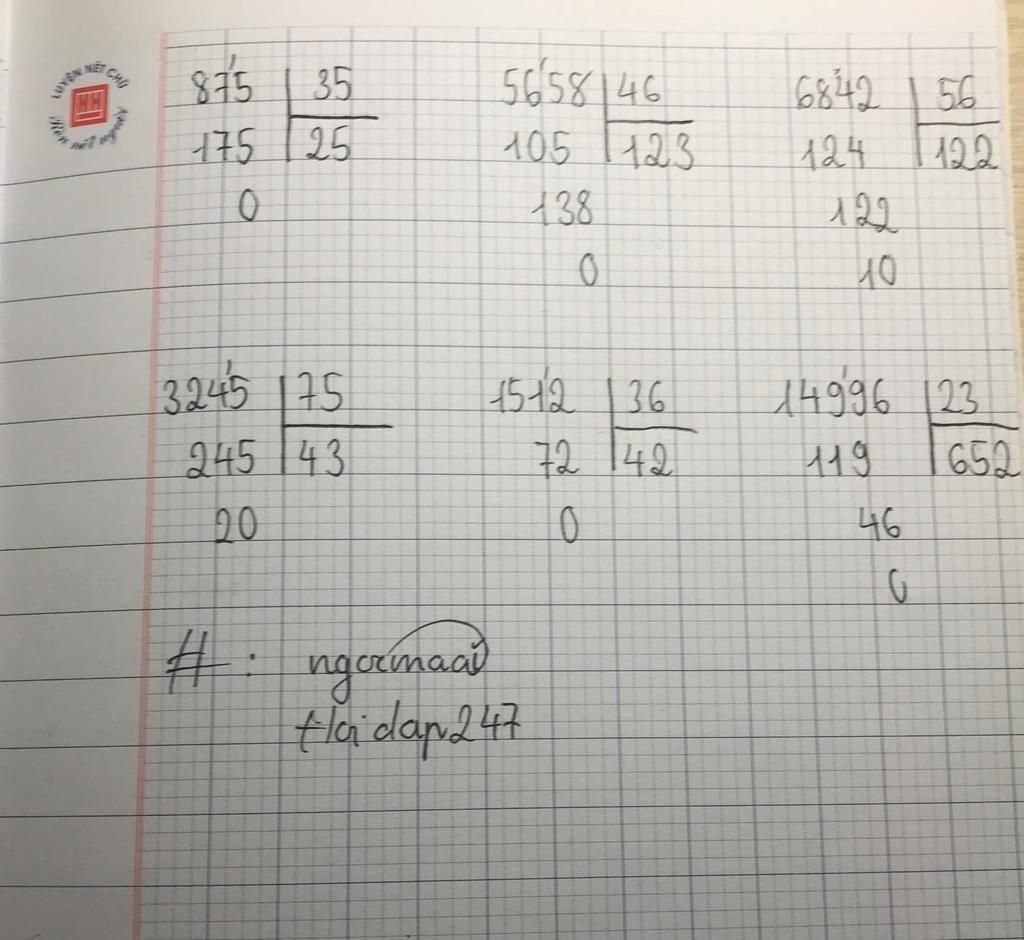 LUYỆN NÉT CHỮ
Rèn nết người
875 35 5658 46 6842 56
175 25 105 123 124 122
0 138 122
0 10
3245 75 1512 36 14996 23
245 43 72 42 119 652
20 0 46
0
# :
+lgidap247